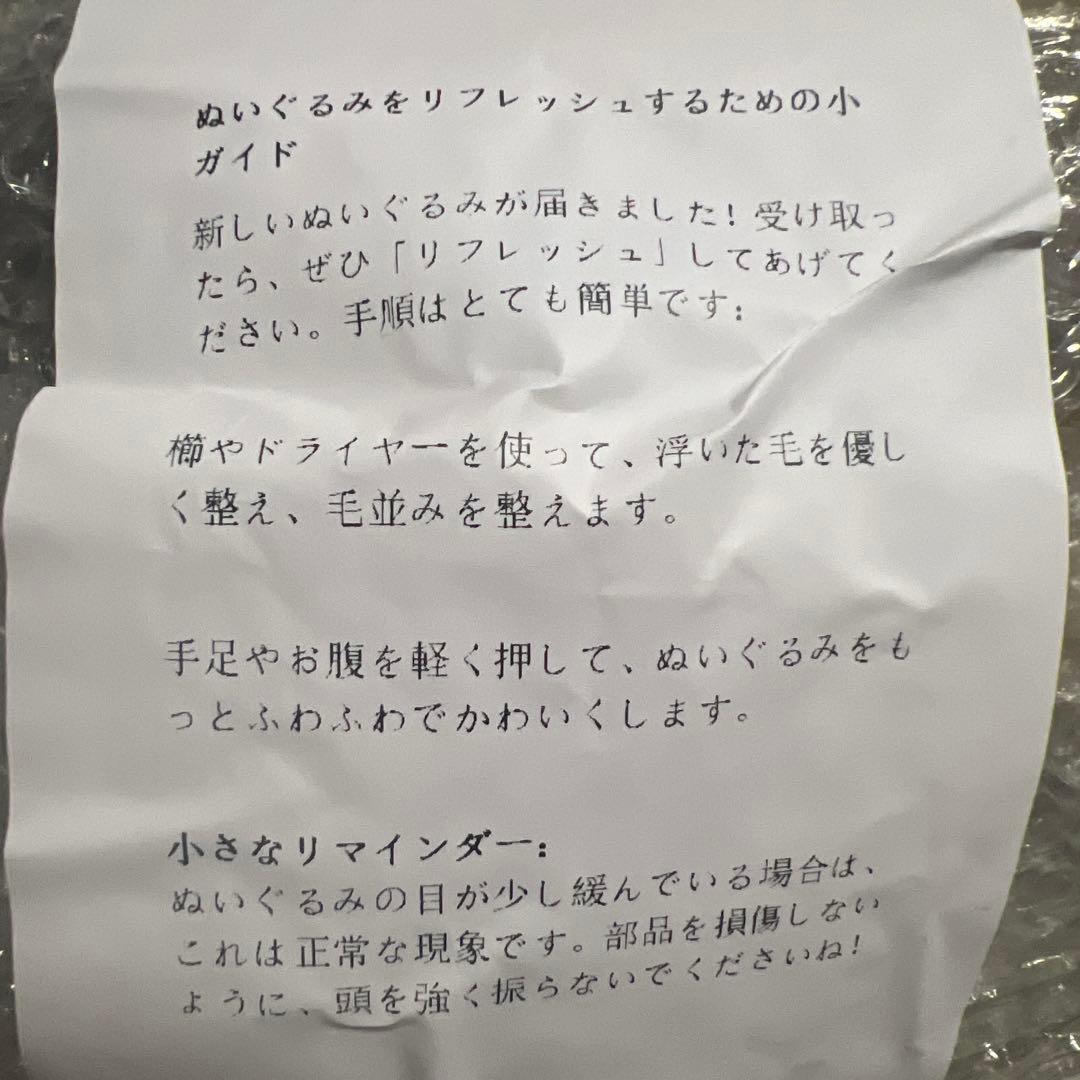 ぬいぐるみをリフレッシュするための小
ガイド
新しいぬいぐるみが届きました!受け取っ
たら、ぜひ「リフレッシュ」してあげてく
ださい。手順はとても簡単です:
櫛やドライヤーを使って、浮いた毛を優し
く整え、毛並みを整えます。
手足やお腹を軽く押して、ぬいぐるみをも
っとふわふわでかわいくします。
小さなリマインダー:
ぬいぐるみの目が少し緩んでいる場合は、
これは正常な現象です。部品を損傷しない
ように、頭を強く振らないでくださいね!